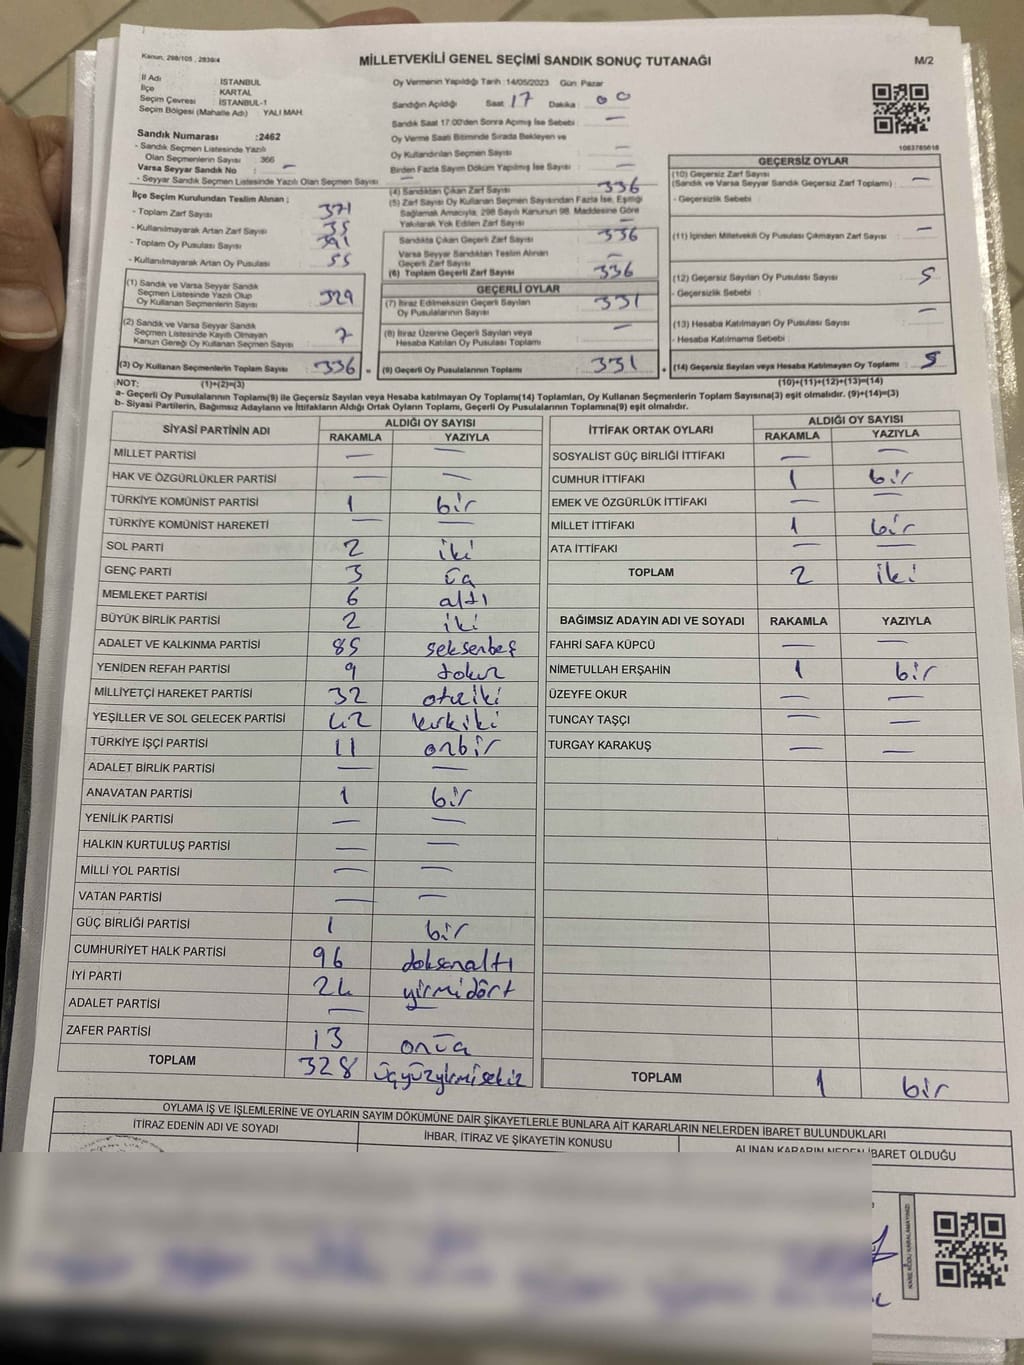 Kanun, 298/105 , 2839/4
MİLLETVEKİLİ GENEL SEÇİMİ SANDIK SONUÇ TUTANAĞI
M/2
İl Adı İSTANBUL
İlçe KARTAL
Seçim Çevresi İSTANBUL-1
Seçim Bölgesi (Mahalle Adı) : YALI MAH.
Sandık Numarası :2462
- Sandık Seçmen Listesinde Yazılı
Olan Seçmenlerin Sayısı : 366
Varsa Seyyar Sandık No : —
- Seyyar Sandık Seçmen Listesinde Yazılı Olan Seçmen Sayısı : —
Oy Vermenin Yapıldığı Tarih :14/05/2023 Gün: Pazar
Sandığın Açıldığı Saat 17 Dakika 00
Sandık Saat 17:00'den Sonra Açımış İse Sebebi : —
Oy Verme Saati Bitiminde Sırada Bekleyen ve
Oy Kullandırılan Seçmen Sayısı : —
Birden Fazla Sayım Döküm Yapılmış İse Sayısı : —
1083785618
İlçe Seçim Kurulundan Teslim Alınan :
- Toplam Zarf Sayısı : 371
- Kullanılmayarak Artan Zarf Sayısı : 35
- Toplam Oy Pusulası Sayısı : 391
- Kullanılmayarak Artan Oy Pusulası : 55
(1) Sandık ve Varsa Seyyar Sandık
Seçmen Listesinde Yazılı Olup
Oy Kullanan Seçmenlerin Sayısı : 329
(2) Sandık ve Varsa Seyyar Sandık
Seçmen Listesinde Kayıtlı Olmayan
Kanun Gereği Oy Kullanan Seçmen Sayısı : 7
(3) Oy Kullanan Seçmenlerin Toplam Sayısı : 336 =
(4) Sandıktan Çıkan Zarf Sayısı : 336
(5) Zarf Sayısı Oy Kullanan Seçmen Sayısından Fazla İse, Eşitliği
Sağlamak Amacıyla, 298 Sayılı Kanunun 98. Maddesine Göre
Yakılarak Yok Edilen Zarf Sayısı : —
Sandıkta Çıkan Geçerli Zarf Sayısı : 336
Varsa Seyyar Sandıktan Teslim Alınan
Geçerli Zarf Sayısı : —
(6) Toplam Geçerli Zarf Sayısı : 336
GEÇERLİ OYLAR
(7) İtiraz Edilmeksizin Geçerli Sayılan
Oy Pusulalarının Sayısı : 331
(8) İtiraz Üzerine Geçerli Sayılan veya
Hesaba Katılan Oy Pusulası Toplamı : —
(9) Geçerli Oy Pusulalarının Toplamı : 331 +
GEÇERSİZ OYLAR
(10) Geçersiz Zarf Sayısı
(Sandık ve Varsa Seyyar Sandık Geçersiz Zarf Toplamı) : —
- Geçersizlik Sebebi :
(11) İçinden Milletvekili Oy Pusulası Çıkmayan Zarf Sayısı : —
(12) Geçersiz Sayılan Oy Pusulası Sayısı : 5
- Geçersizlik Sebebi :
(13) Hesaba Katılmayan Oy Pusulası Sayısı : —
- Hesaba Katılmama Sebebi :
(14) Geçersiz Sayılan veya Hesaba Katılmayan Oy Toplamı : 5
NOT: (1)+(2)=(3) (10)+(11)+(12)+(13)=(14)
a- Geçerli Oy Pusulalarının Toplamı(9) ile Geçersiz Sayılan veya Hesaba katılmayan Oy Toplamı(14) Toplamları, Oy Kullanan Seçmenlerin Toplam Sayısına(3) eşit olmalıdır. (9)+(14)=(3)
b- Siyasi Partilerin, Bağımsız Adayların ve İttifakların Aldığı Ortak Oyların Toplamı, Geçerli Oy Pusulalarının Toplamına(9) eşit olmalıdır.
SİYASİ PARTİNİN ADI ALDIĞI OY SAYISI
RAKAMLA YAZIYLA
MİLLET PARTİSİ — —
HAK VE ÖZGÜRLÜKLER PARTİSİ — —
TÜRKİYE KOMÜNİST PARTİSİ 1 bir
TÜRKİYE KOMÜNİST HAREKETİ — —
SOL PARTİ 2 iki
GENÇ PARTİ 3 üç
MEMLEKET PARTİSİ 6 altı
BÜYÜK BİRLİK PARTİSİ 2 iki
ADALET VE KALKINMA PARTİSİ 85 seksenbeş
YENİDEN REFAH PARTİSİ 9 dokuz
MİLLİYETÇİ HAREKET PARTİSİ 32 otuziki
YEŞİLLER VE SOL GELECEK PARTİSİ 42 kırkiki
TÜRKİYE İŞÇİ PARTİSİ 11 onbir
ADALET BİRLİK PARTİSİ — —
ANAVATAN PARTİSİ 1 bir
YENİLİK PARTİSİ — —
HALKIN KURTULUŞ PARTİSİ — —
MİLLİ YOL PARTİSİ — —
VATAN PARTİSİ — —
GÜÇ BİRLİĞİ PARTİSİ 1 bir
CUMHURİYET HALK PARTİSİ 96 doksanaltı
İYİ PARTİ 24 yirmidört
ADALET PARTİSİ —
ZAFER PARTİSİ 13 onüç
TOPLAM 328 üçyüzyirmisekiz
İTTİFAK ORTAK OYLARI ALDIĞI OY SAYISI
RAKAMLA YAZIYLA
SOSYALİST GÜÇ BİRLİĞİ İTTİFAKI — —
CUMHUR İTTİFAKI 1 bir
EMEK VE ÖZGÜRLÜK İTTİFAKI — —
MİLLET İTTİFAKI 1 bir
ATA İTTİFAKI — —
TOPLAM 2 iki
BAĞIMSIZ ADAYIN ADI VE SOYADI RAKAMLA YAZIYLA
FAHRİ SAFA KÜPCÜ — —
NİMETULLAH ERŞAHİN 1 bir
ÜZEYFE OKUR — —
TUNCAY TAŞÇI — —
TURGAY KARAKUŞ — —
TOPLAM 1 bir
OYLAMA İŞ VE İŞLEMLERİNE VE OYLARIN SAYIM DÖKÜMÜNE DAİR ŞİKAYETLERLE BUNLARA AİT KARARLARIN NELERDEN İBARET BULUNDUKLARI
İTİRAZ EDENİN ADI VE SOYADI
İHBAR, İTİRAZ VE ŞİKAYETİN KONUSU
ALINAN KARARIN NEDEN İBARET OLDUĞU